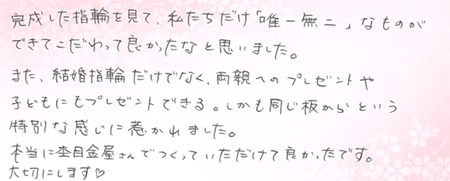 完成した指輪を見て、私たちだけ「唯一無二」なものが
できてこだわって良かったなと思いました。
また、結婚指輪だけでなく、両親へのプレゼントや
子どもにもプレゼントできる。しかも同じ板からという
特別な感じに惹かれました。
本当に杢目金屋さんでつくっていただけて良かったです。
大切にします♡